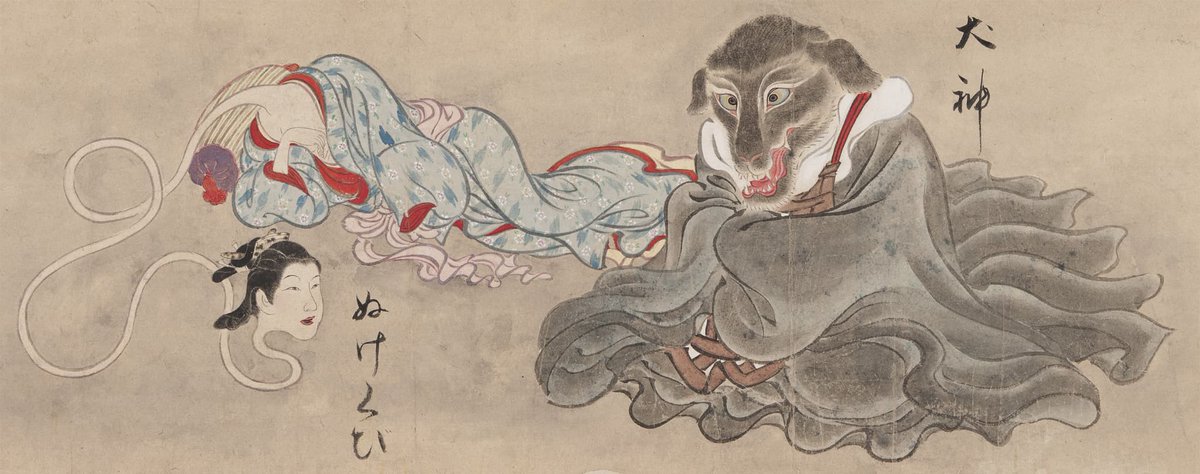 犬神
ぬけくび